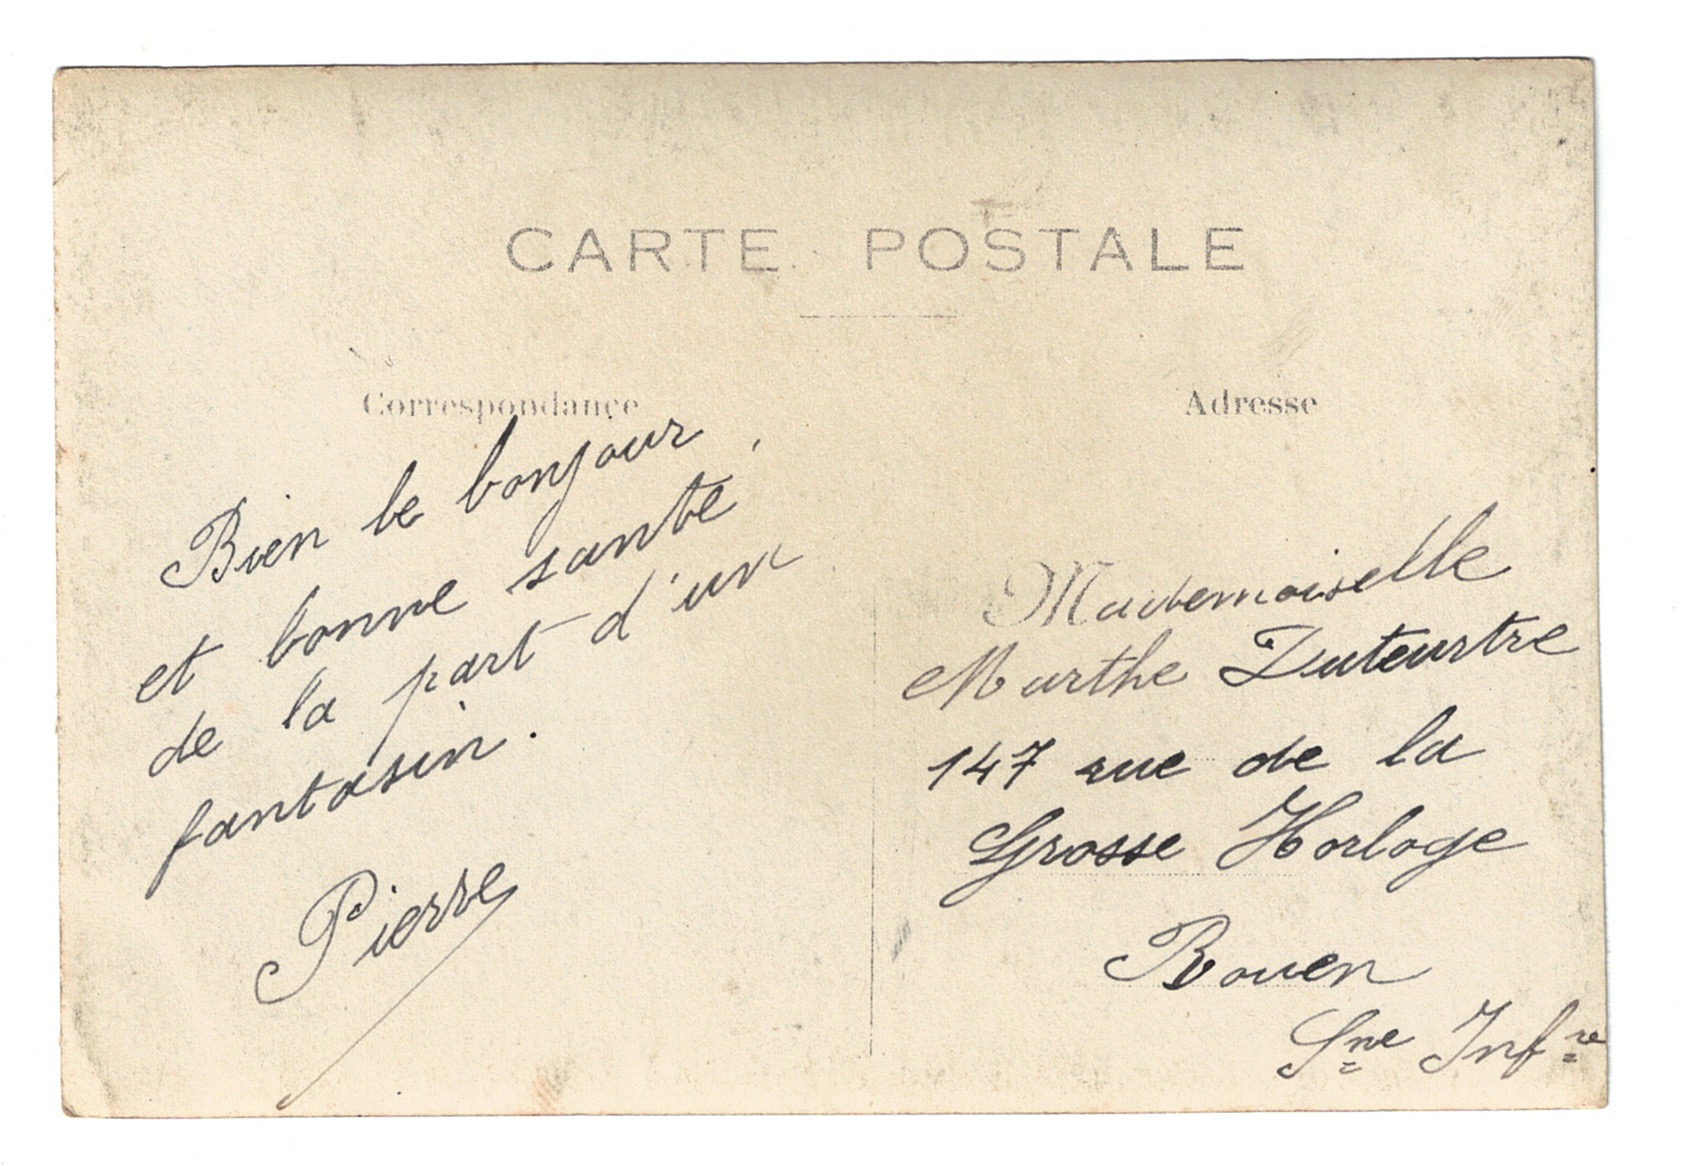 CARTE POSTALE
Correspondance
Bien le bonjour
et bonne santé,
de la part d'un
fantasin.
Pierre
Adresse
Mademoiselle
Marthe Duteurtre
147 rue de la
Grosse Horloge
Rouen
Sne Infre